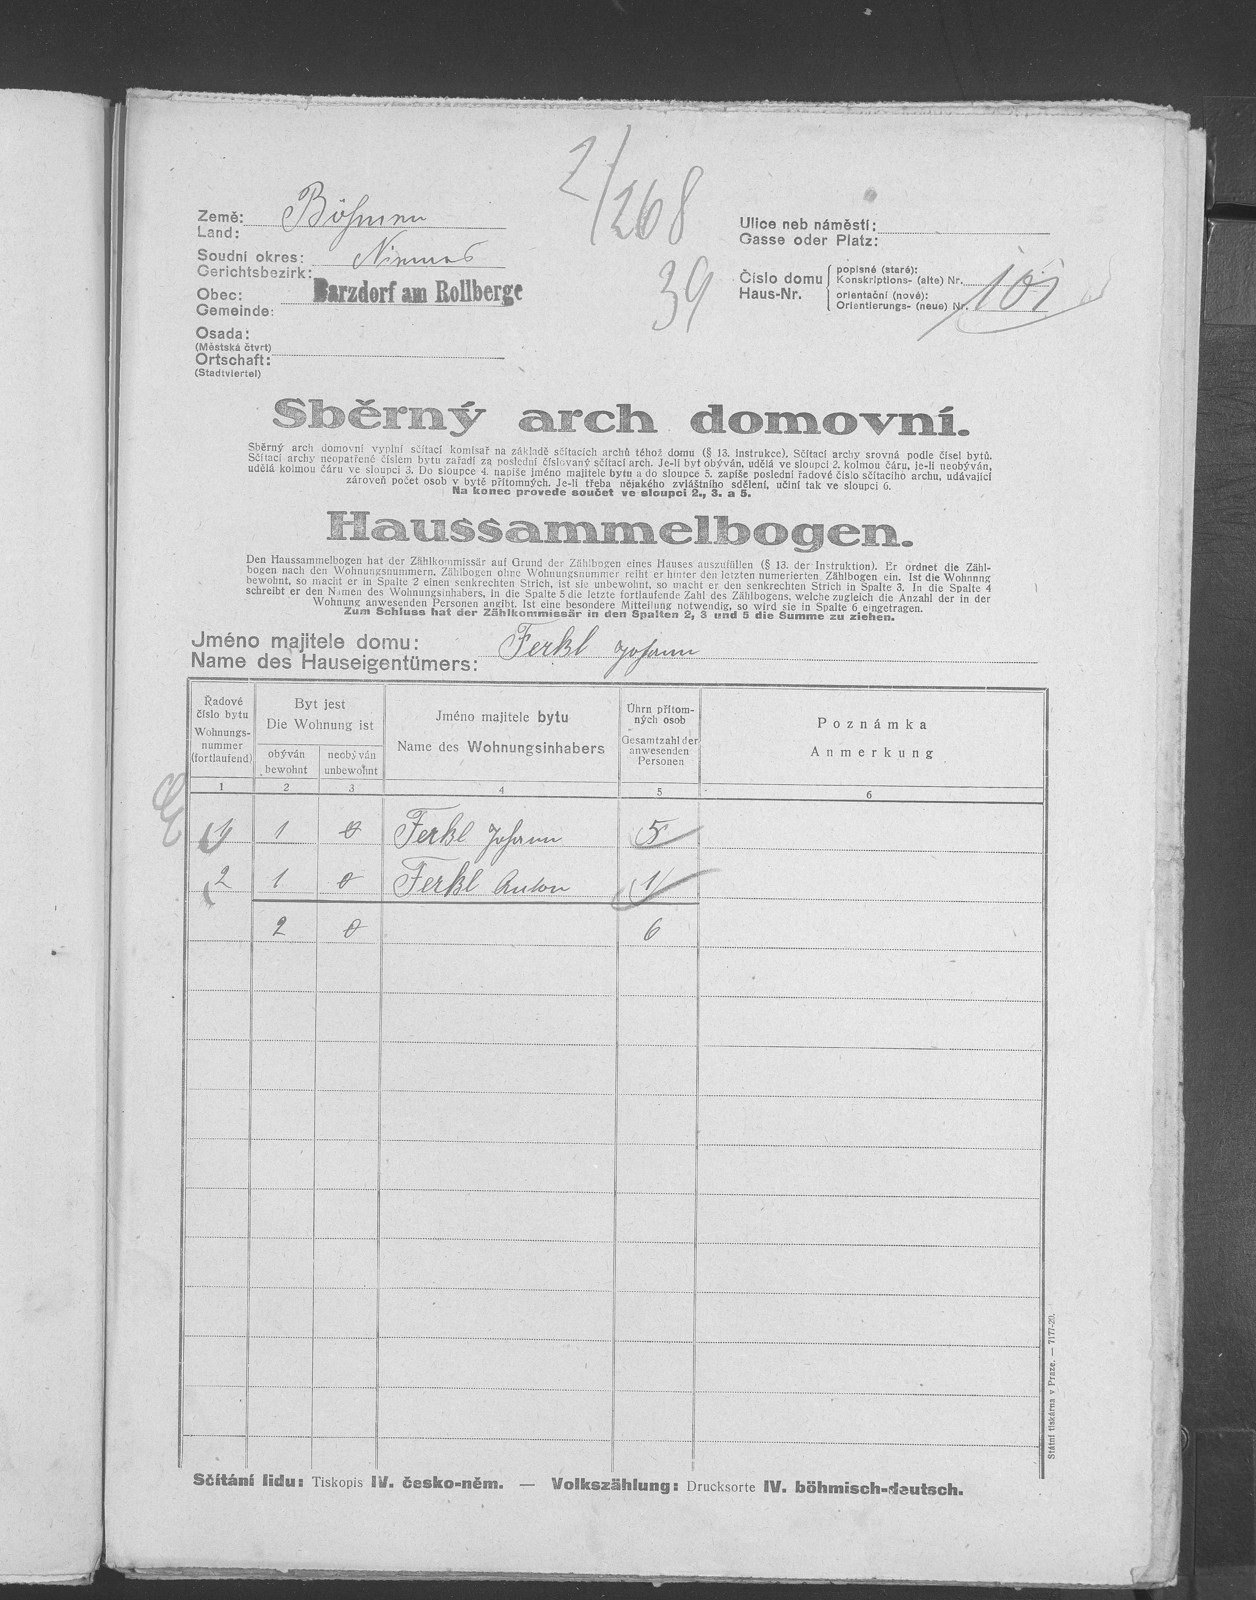 2/268
39
Země: Böhmen
Land:
Soudní okres: Niemes
Gerichtsbezirk:
Obec: Barzdorf am Rollberge
Gemeinde:
Osada:
(Městská čtvrt)
Ortschaft:
(Stadtviertel)
Ulice neb náměstí:
Gasse oder Platz:
Číslo domu
Haus-Nr.
popisné (staré):
Konskriptions- (alte) Nr.
orientační (nové):
Orientierungs- (neue) Nr.
101
Sběrný arch domovní.
Sběrný arch domovní vyplní sčítací komisař na základě sčítacích archů téhož domu (§ 13. instrukce). Sčítací archy srovná podle čísel bytů.
Sčítací archy neopatřené číslem bytu zařadí za poslední číslovaný sčítací arch. Je-li byt obýván, udělá ve sloupci 2. kolmou čáru, je-li neobýván,
udělá kolmou čáru ve sloupci 3. Do sloupce 4. napíše jméno majitele bytu a do sloupce 5. zapíše poslední řadové číslo sčítacího archu, udávající
zároveň počet osob v bytě přítomných. Je-li třeba nějakého zvláštního sdělení, učiní tak ve sloupci 6.
Na konec provede součet ve sloupci 2., 3. a 5.
Haussammelbogen.
Den Haussammelbogen hat der Zählkommissär auf Grund der Zählbogen eines Hauses auszufüllen (§ 13. der Instruktion). Er ordnet die Zähl-
bogen nach den Wohnungsnummern. Zählbogen ohne Wohnungsnummer reiht er hinter den letzten numerierten Zählbogen ein. Ist die Wohnnng
bewohnt, so macht er in Spalte 2 einen senkrechten Strich, ist sie unbewohnt, so macht er den senkrechten Strich in Spalte 3. In die Spalte 4
schreibt er den Namen des Wohnungsinhabers, in die Spalte 5 die letzte fortlaufende Zahl des Zählbogens, welche zugleich die Anzahl der in der
Wohnung anwesenden Personen angibt. Ist eine besondere Mitteilung notwendig, so wird sie in Spalte 6 eingetragen.
Zum Schluss hat der Zählkommissär in den Spalten 2, 3 und 5 die Summe zu ziehen.
Jméno majitele domu: Ferkl Johann
Name des Hauseigentümers:
Řadové
číslo bytu
Wohnungs-
nummer
(fortlaufend)
Byt jest
Die Wohnung ist
obýván
bewohnt
neobýván
unbewohnt
Jméno majitele bytu
Name des Wohnungsinhabers
Úhrn přítom-
ných osob
Gesamtzahl der
anwesenden
Personen
Poznámka
Anmerkung
1 2 3 4 5 6
1 1 0 Ferkl Johann 5
2 1 0 Ferkl Anton 1
2 0 6
Státní tiskárna v Praze. — 7177-20.
Sčítání lidu: Tiskopis IV. česko-něm. — Volkszählung: Drucksorte IV. böhmisch-deutsch.